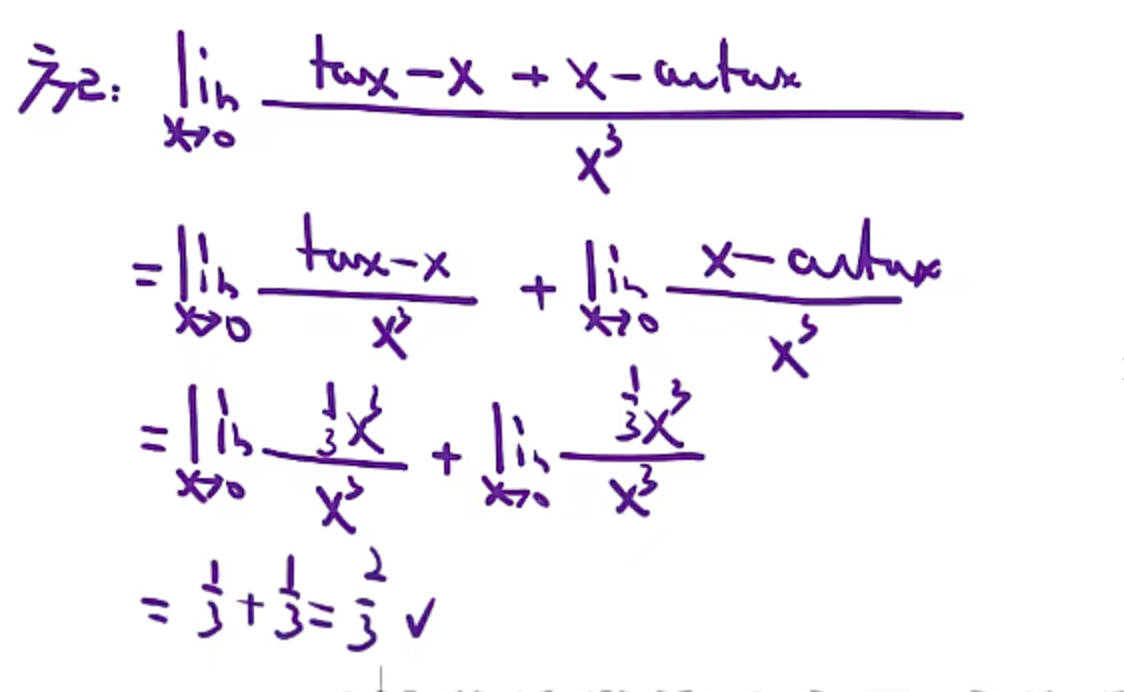 方法2: lim x→0 (tanx − x + x − arctanx) / x³
= lim x→0 (tanx − x) / x³ + lim x→0 (x − arctanx) / x³
= lim x→0 (1/3 x³) / x³ + lim x→0 (1/3 x³) / x³
= 1/3 + 1/3 = 2/3 ✓